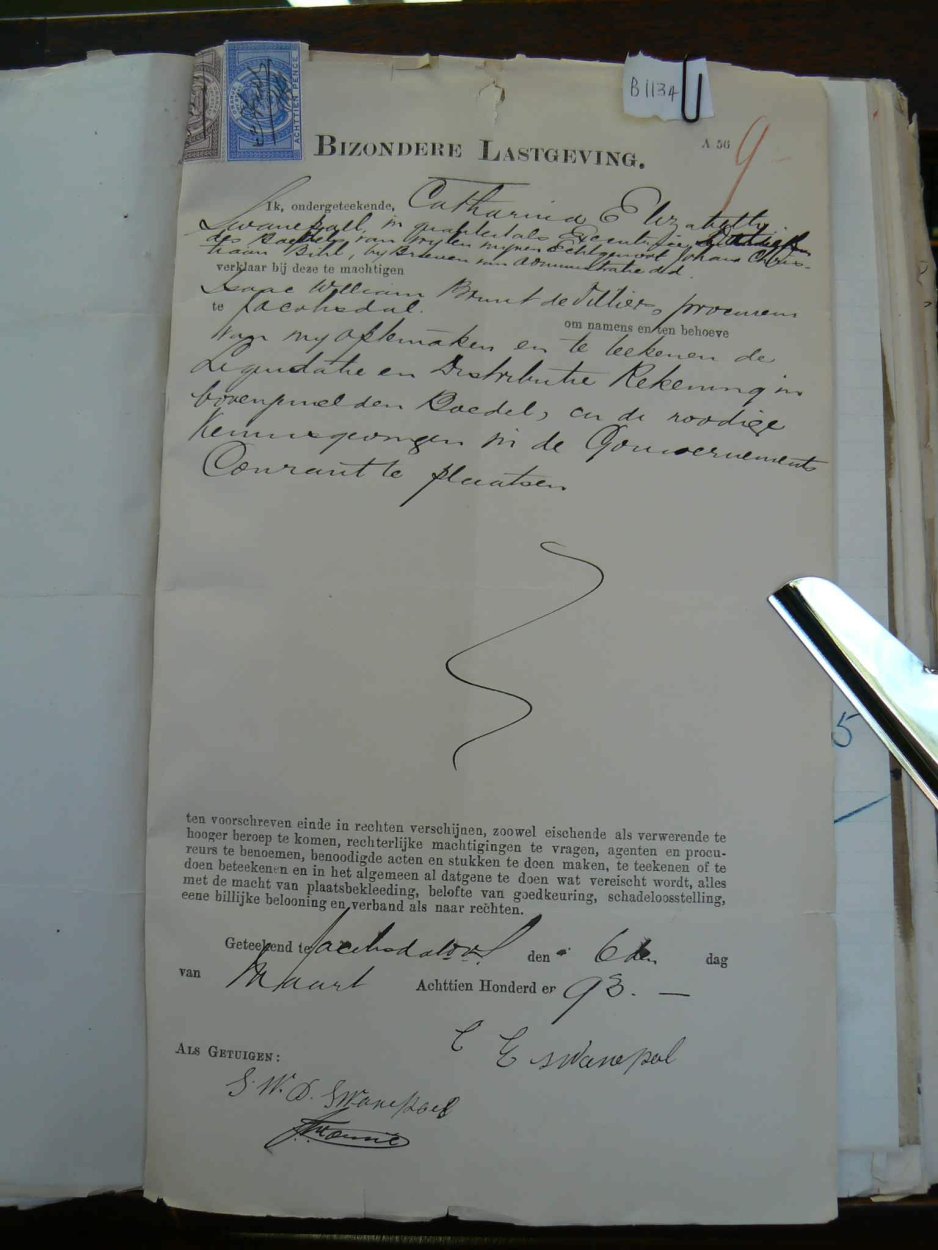 B1134
ACHTTIEN PENCE
BIZONDERE LASTGEVING.
A 56
9
Ik, ondergeteekende, Catharina Elizabeth
Swanepoel, in qualiteit als Executrice
des Boedels van wylen mynen Echtgenoot Johans Chris-
tiaan Buhl, by Brieven van administratie dd.
verklaar bij deze te machtigen
Isaac William Brunt de Villiers, procureur
te Jacobsdal.
om namens en ten behoeve
van my op te maken en te teekenen de
Liquidatie en Distributie Rekening in
bovengemelden Boedel, en de noodige
Kennisgevingen in de Gouvernements
Courant te plaatsen
ten voorschreven einde in rechten verschijnen, zoowel eischende als verwerende te
hooger beroep te komen, rechterlijke machtigingen te vragen, agenten en procu-
reurs te benoemen, benoodigde acten en stukken te doen maken, te teekenen of te
doen beteekenen en in het algemeen al datgene te doen wat vereischt wordt, alles
met de macht van plaatsbekleeding, belofte van goedkeuring, schadeloosstelling,
eene billijke belooning en verband als naar rechten.
Geteekend te Jacobsdal OVS den 6den dag
van Maart Achttien Honderd en 93. —
C E Swanepol
ALS GETUIGEN:
S. W. D. Swanepoel
5